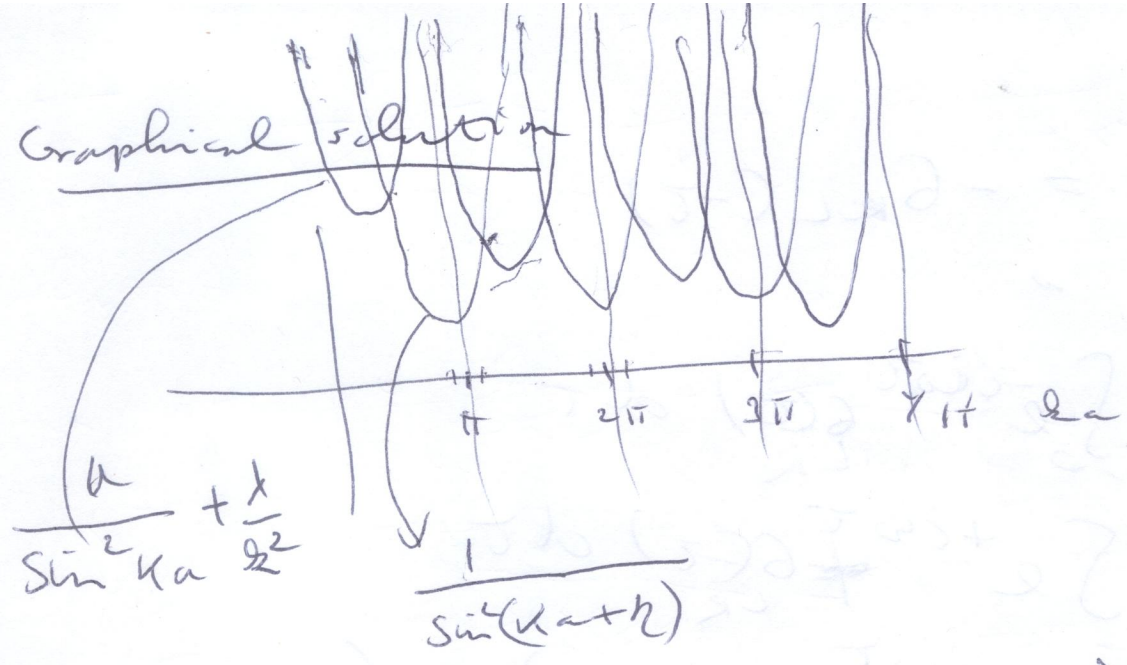 Graphical solution
π 2π 3π 4π ka
u / sin² ka + λ / k²
1 / sin²(ka+η)